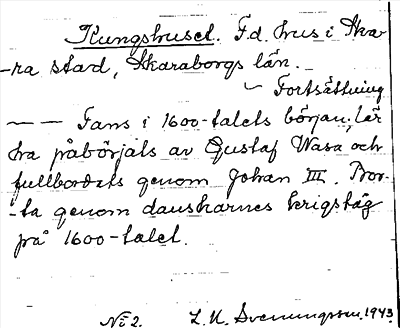 Kungshuset. F.d. hus i Ska-
-ra stad, Skaraborgs län.
~ Fortsättning
—— Fans i 1600-talets början, lär
ha påbörjats av Gustaf Wasa och
fullbordats genom Johan III. Bor-
-ta genom danskarnes krigståg
på 1600-talet.
No 2. L. N. Svenungsson. 1943.